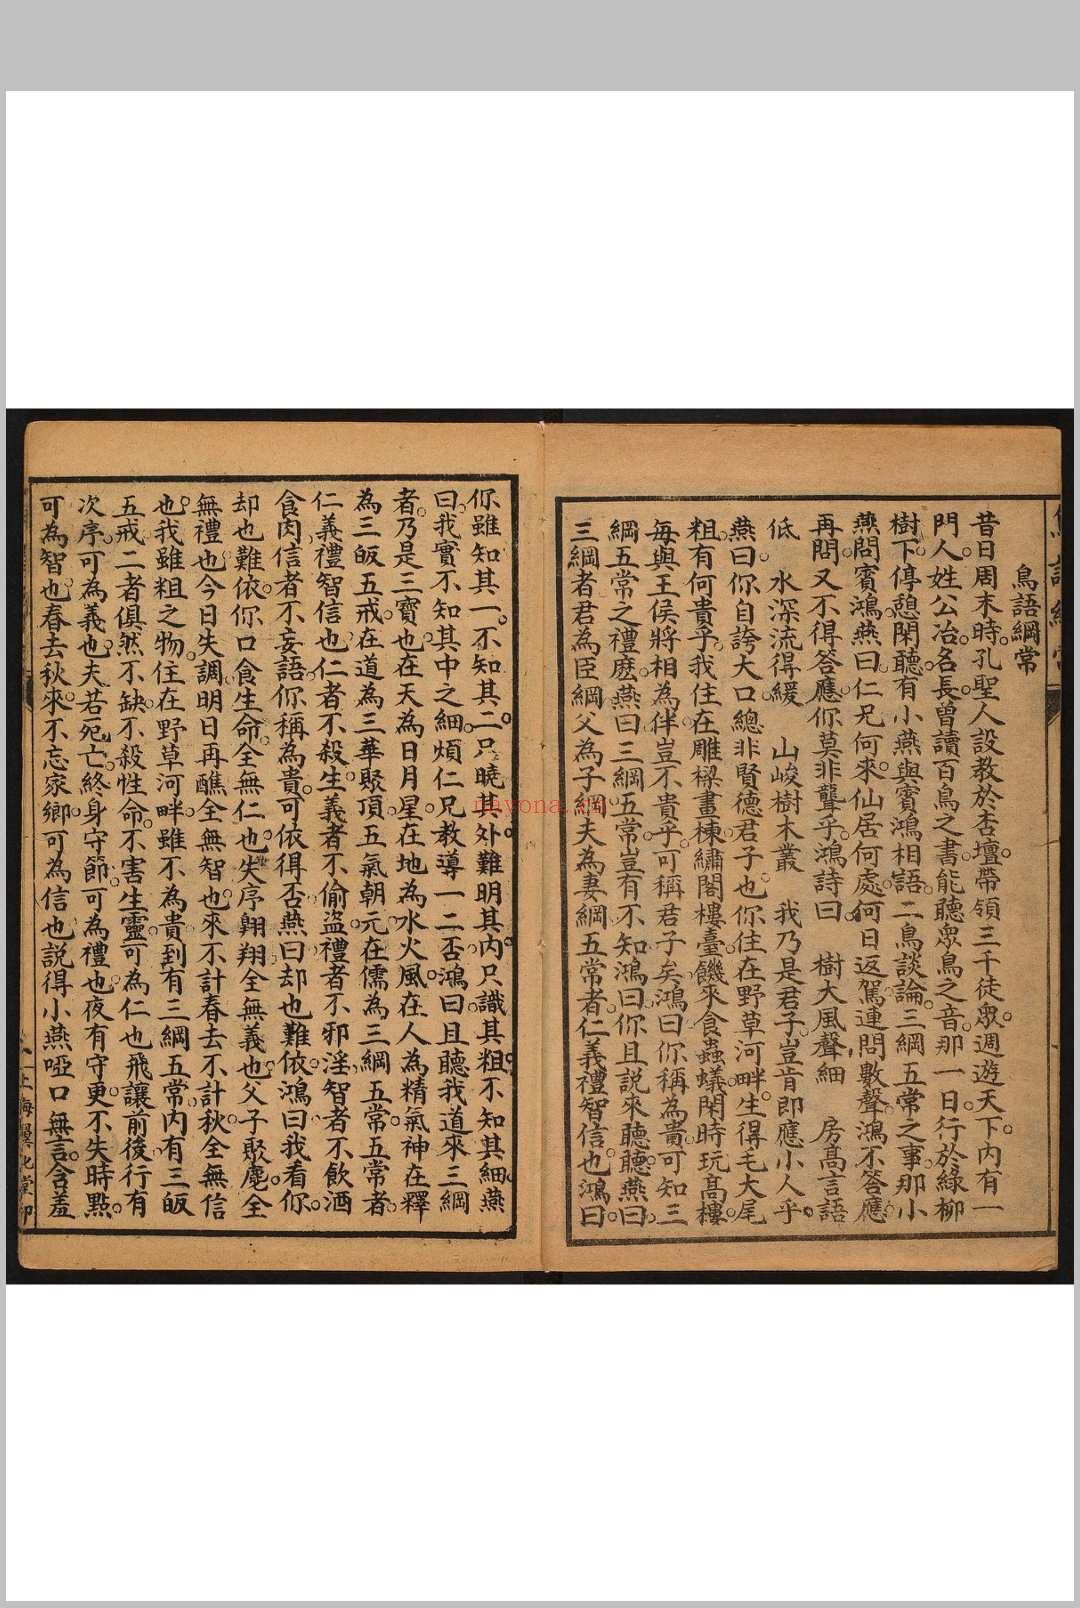 鳥語綱常
昔日周末時。孔聖人設教於杏壇。帶領三千徒眾。週遊天下。內有一
門人。姓公冶。名長。曾讀百鳥之書。能聽眾鳥之音。那一日。行於綠柳
樹下。停憩閑聽。有小燕與賓鴻相語。二鳥談論。三綱五常之事。那小
燕問賓鴻。燕曰。仁兄何來。仙居何處。何日返駕。連問數聲。鴻不答應。
再問。又不得答應。你莫非聾乎。鴻詩曰　樹大風聲細　房高言語
低　水深流得緩　山峻樹木叢　我乃是君子。豈肯即應小人乎。
燕曰。你自誇大口。總非賢德君子也。你住在野草河畔。生得毛大尾
粗。有何貴乎。我住在雕樑畫棟。繡閣樓臺。饑來食蟲蟻。閑時玩高樓。
每與王侯將相為伴。豈不貴乎。可稱君子矣。鴻曰。你稱為貴。可知三
綱五常之禮麼。燕曰。三綱五常。豈有不知。鴻曰。你且說來聽聽。燕曰。
三綱者。君為臣綱。父為子綱。夫為妻綱。五常者。仁義禮智信也。鴻曰。
你雖知其一。不知其二。只曉其外。難明其內。只識其粗。不知其細。燕
曰。我實不知其中之細。煩仁兄教導一二否。鴻曰。且聽我道來。三綱
者。乃是三寶也。在天為日月星。在地為水火風。在人為精氣神。在釋
為三皈五戒。在道為三華聚頂。五氣朝元。在儒為三綱五常。五常者。
仁義禮智信也。仁者不殺生。義者不偷盜。禮者不邪淫。智者不飲酒
食肉。信者不妄語。你稱為貴。可依得否。燕曰。却也難依。鴻曰。我看你。
却也難依。你口食生命。全無仁也。失序翱翔。全無義也。父子聚麀。全
無禮也。今日失調。明日再醮。全無智也。來不計春。去不計秋。全無信
也。我雖粗之物。住在野草河畔。雖不為貴。到有三綱五常。內有三皈
五戒。二者俱然不缺。不殺性命。不害生靈。可為仁也。飛讓前後。行有
次序。可為義也。夫若死亡。終身守節。可為禮也。夜有守更。不失時點。
可為智也。春去秋來。不忘家鄉。可為信也。說得小燕啞口無言。含羞